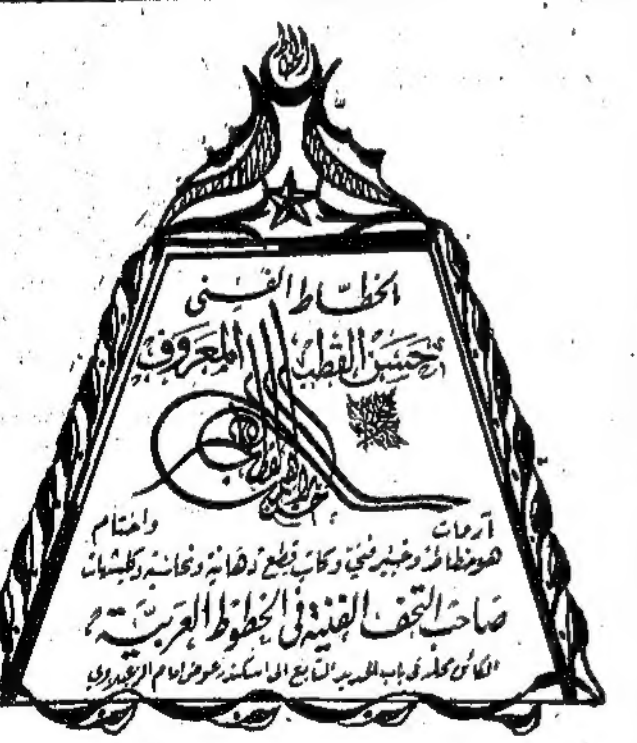 الخطاط
الخطّاط الفني
حسن القطب المعروف
آرمات واختام
هو خطاط وخبير فني وكاتب قطع دهانية ونحاسية وكليشهات
صاحب التحف الفنية في الخطوط العربية
الكائن محله في باب الحديد التابع الى اسكندر عوض امام